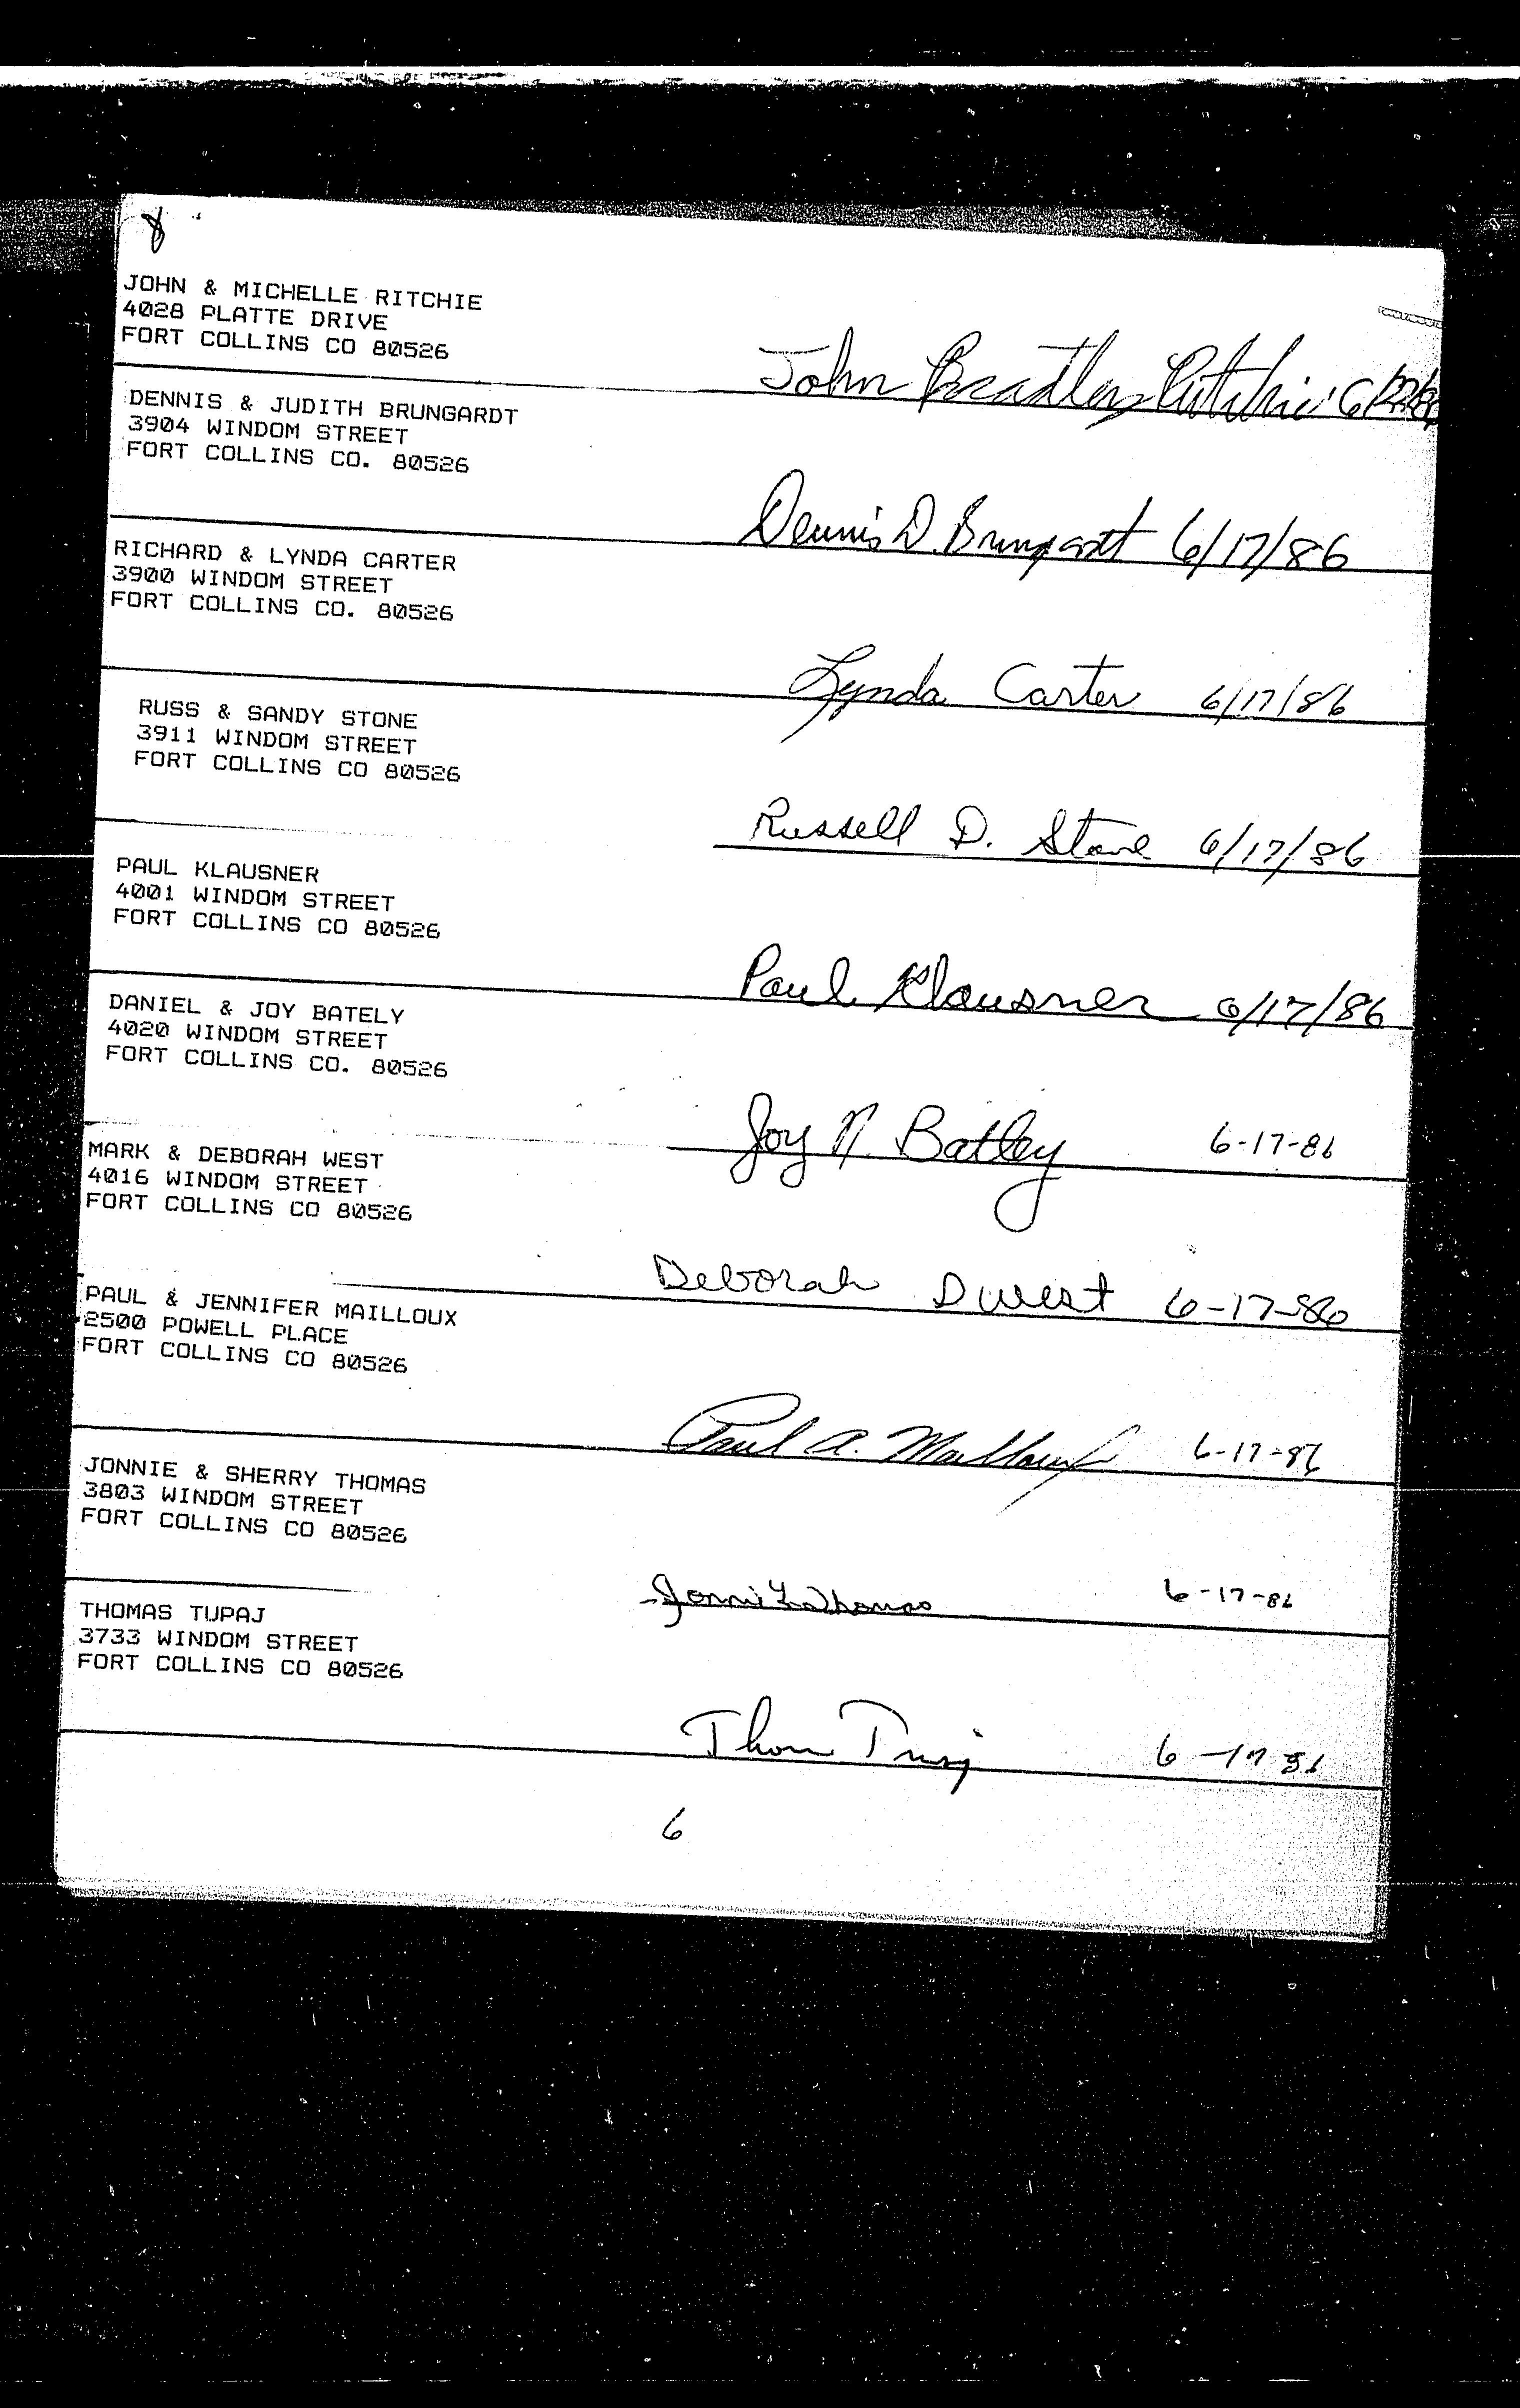 8
JOHN & MICHELLE RITCHIE
4028 PLATTE DRIVE
FORT COLLINS CO 80526
John Bradley Ritchie
DENNIS & JUDITH BRUNGARDT
3904 WINDOM STREET
FORT COLLINS CO. 80526
Dennis D. Brungardt 6/17/86
RICHARD & LYNDA CARTER
3900 WINDOM STREET
FORT COLLINS CO. 80526
Lynda Carter 6/17/86
RUSS & SANDY STONE
3911 WINDOM STREET
FORT COLLINS CO 80526
Russell D. Stone 6/17/86
PAUL KLAUSNER
4001 WINDOM STREET
FORT COLLINS CO 80526
Paul Klausner 6/17/86
DANIEL & JOY BATELY
4020 WINDOM STREET
FORT COLLINS CO. 80526
Joy N. Batley 6-17-86
MARK & DEBORAH WEST
4016 WINDOM STREET
FORT COLLINS CO 80526
Deborah D West 6-17-86
PAUL & JENNIFER MAILLOUX
2500 POWELL PLACE
FORT COLLINS CO 80526
Paul A. Mailloux 6-17-86
JONNIE & SHERRY THOMAS
3803 WINDOM STREET
FORT COLLINS CO 80526
Thomas 6-17-86
THOMAS TUPAJ
3733 WINDOM STREET
FORT COLLINS CO 80526
Thom 6-17 86
6